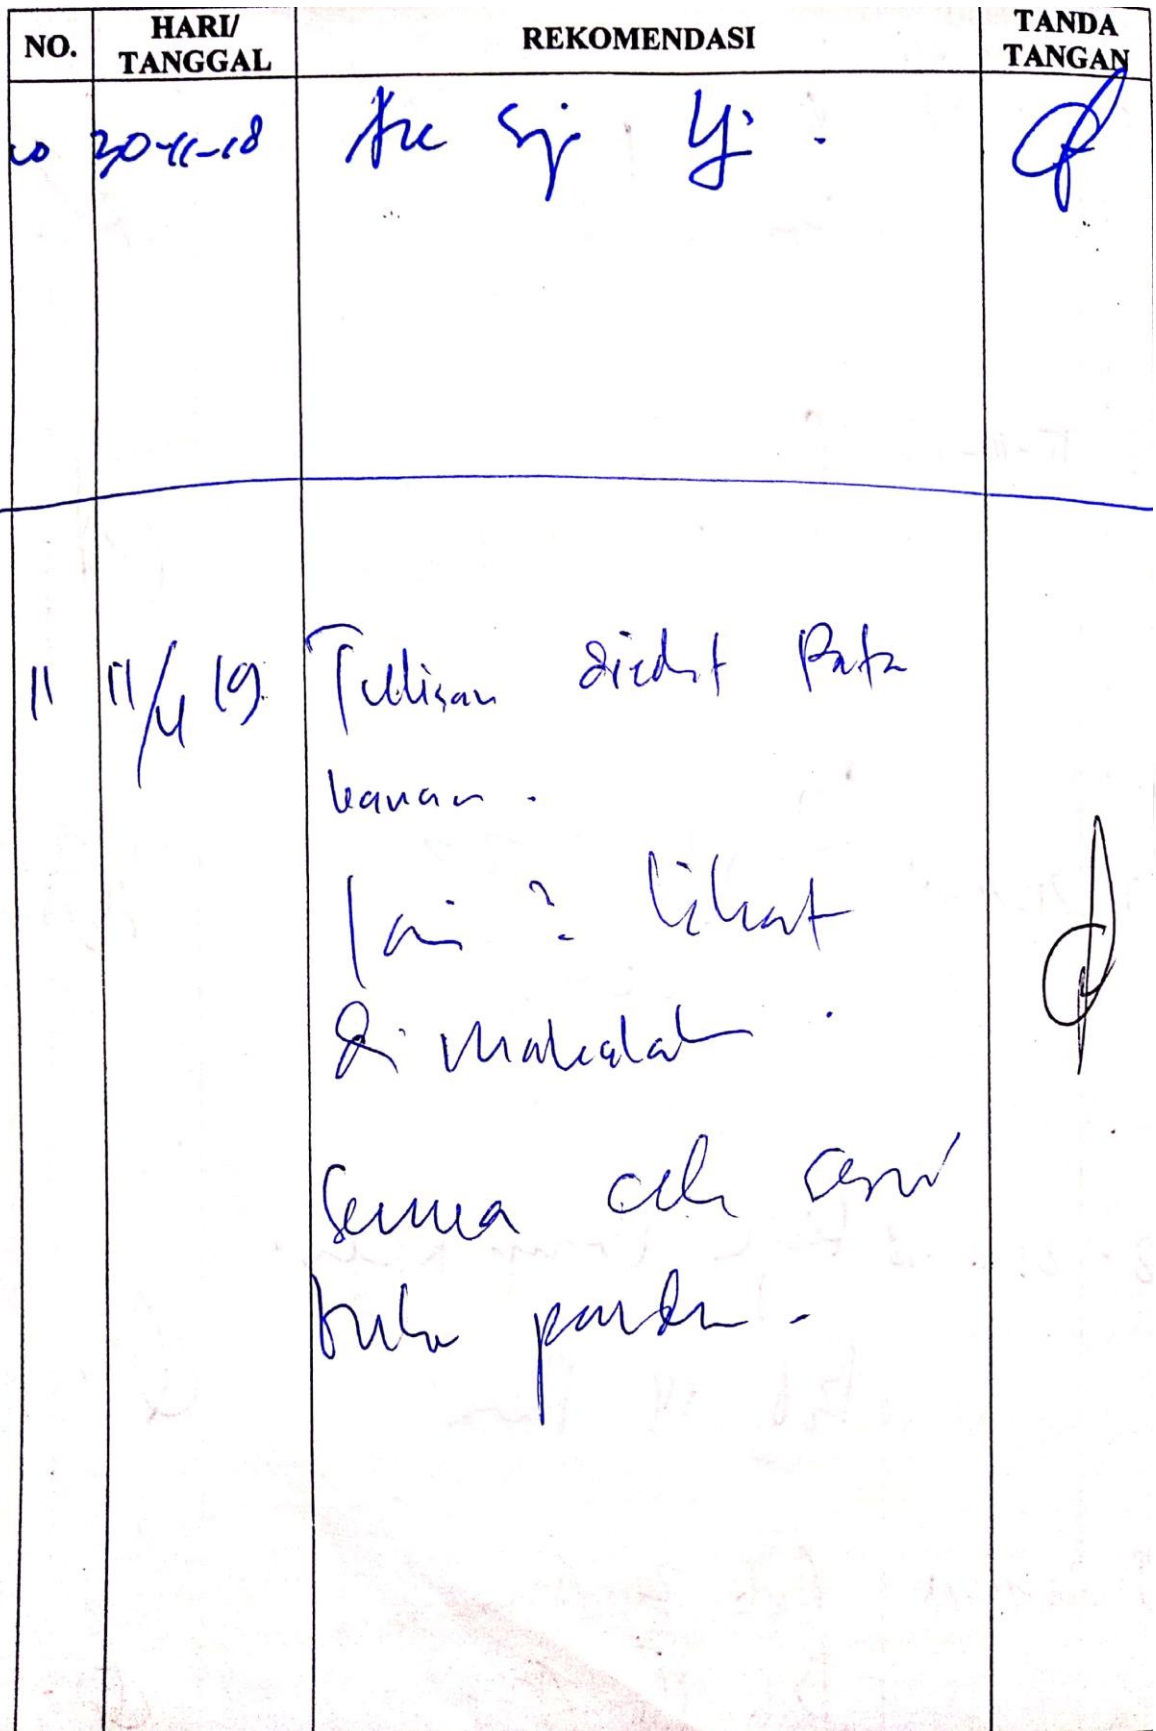 NO. HARI/ TANGGAL REKOMENDASI TANDA TANGAN
30-11-18 Acc
11 11/4 19 Tulisan diedit Rata
kanan.
lain2 lihat
di makalah.
Semua cek sesuai
buku panduan.